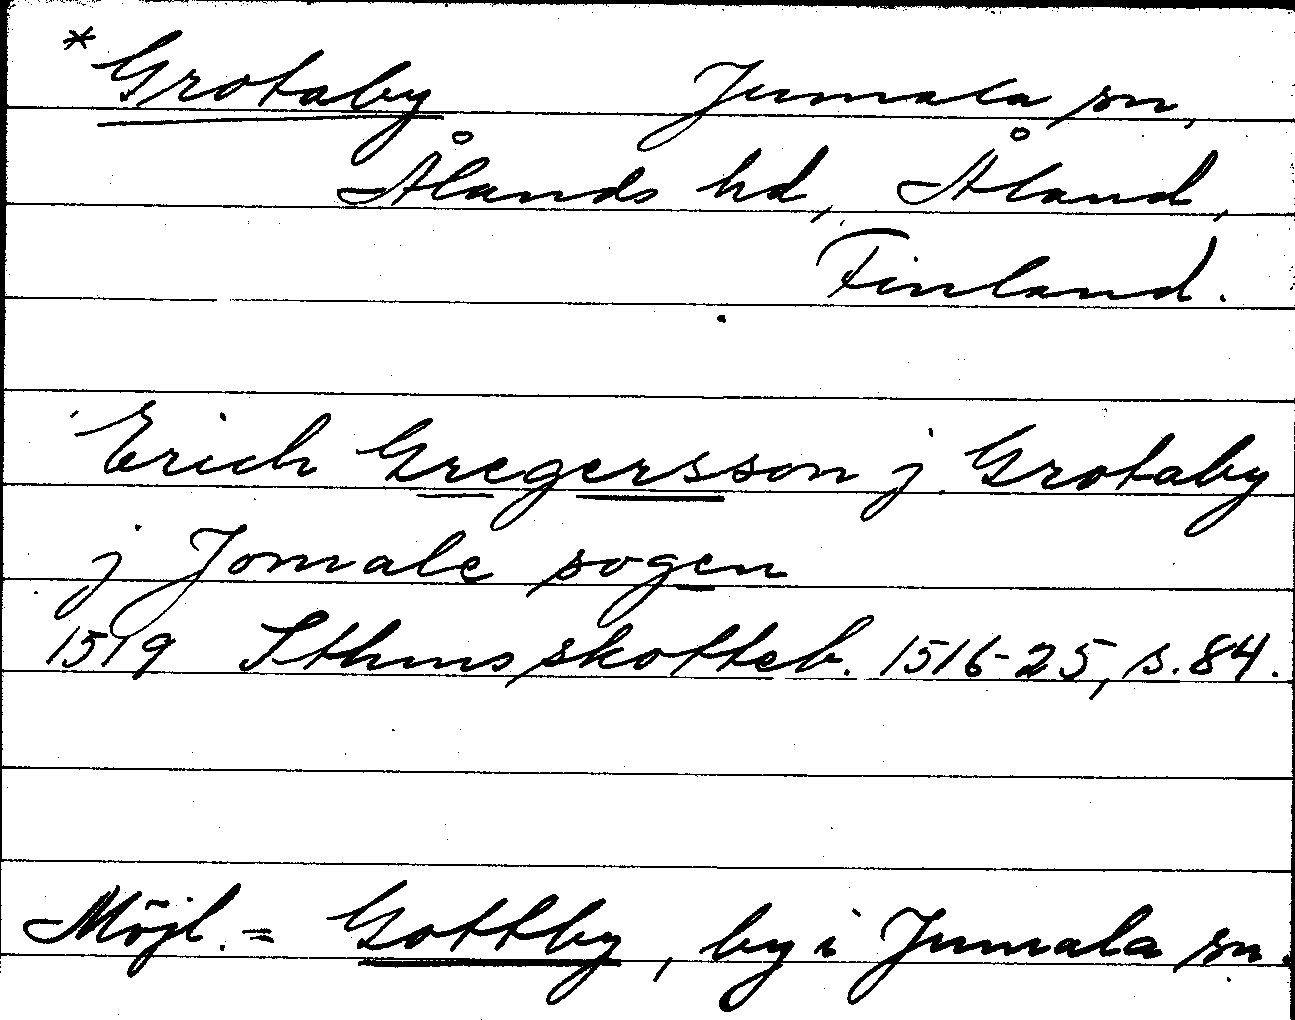 * Grotaby Jumala sn,
Ålands hd, Åland,
Finland.
Erich Gregersson j Grotaby
j Jomale sogen
1519 Sthms skotteb. 1516-25, s. 84.
Möjl. = Gottby, by i Jumala sn.